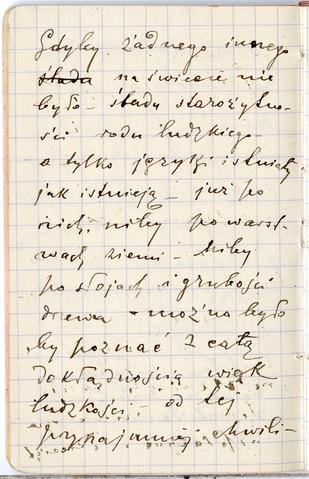 Gdyby żadnego innego
śladu na świecie nie
było – śladu starożytno-
ści rodu ludzkiego –
a tylko języki istniały
jak istnieją – już po
nich, niby po warst-
wach ziemi – niby
po słojach i grubości
drzewa – można było
by poznać z całą
dokładnością wiek
ludzkości – od tej
przynajmniej chwili –